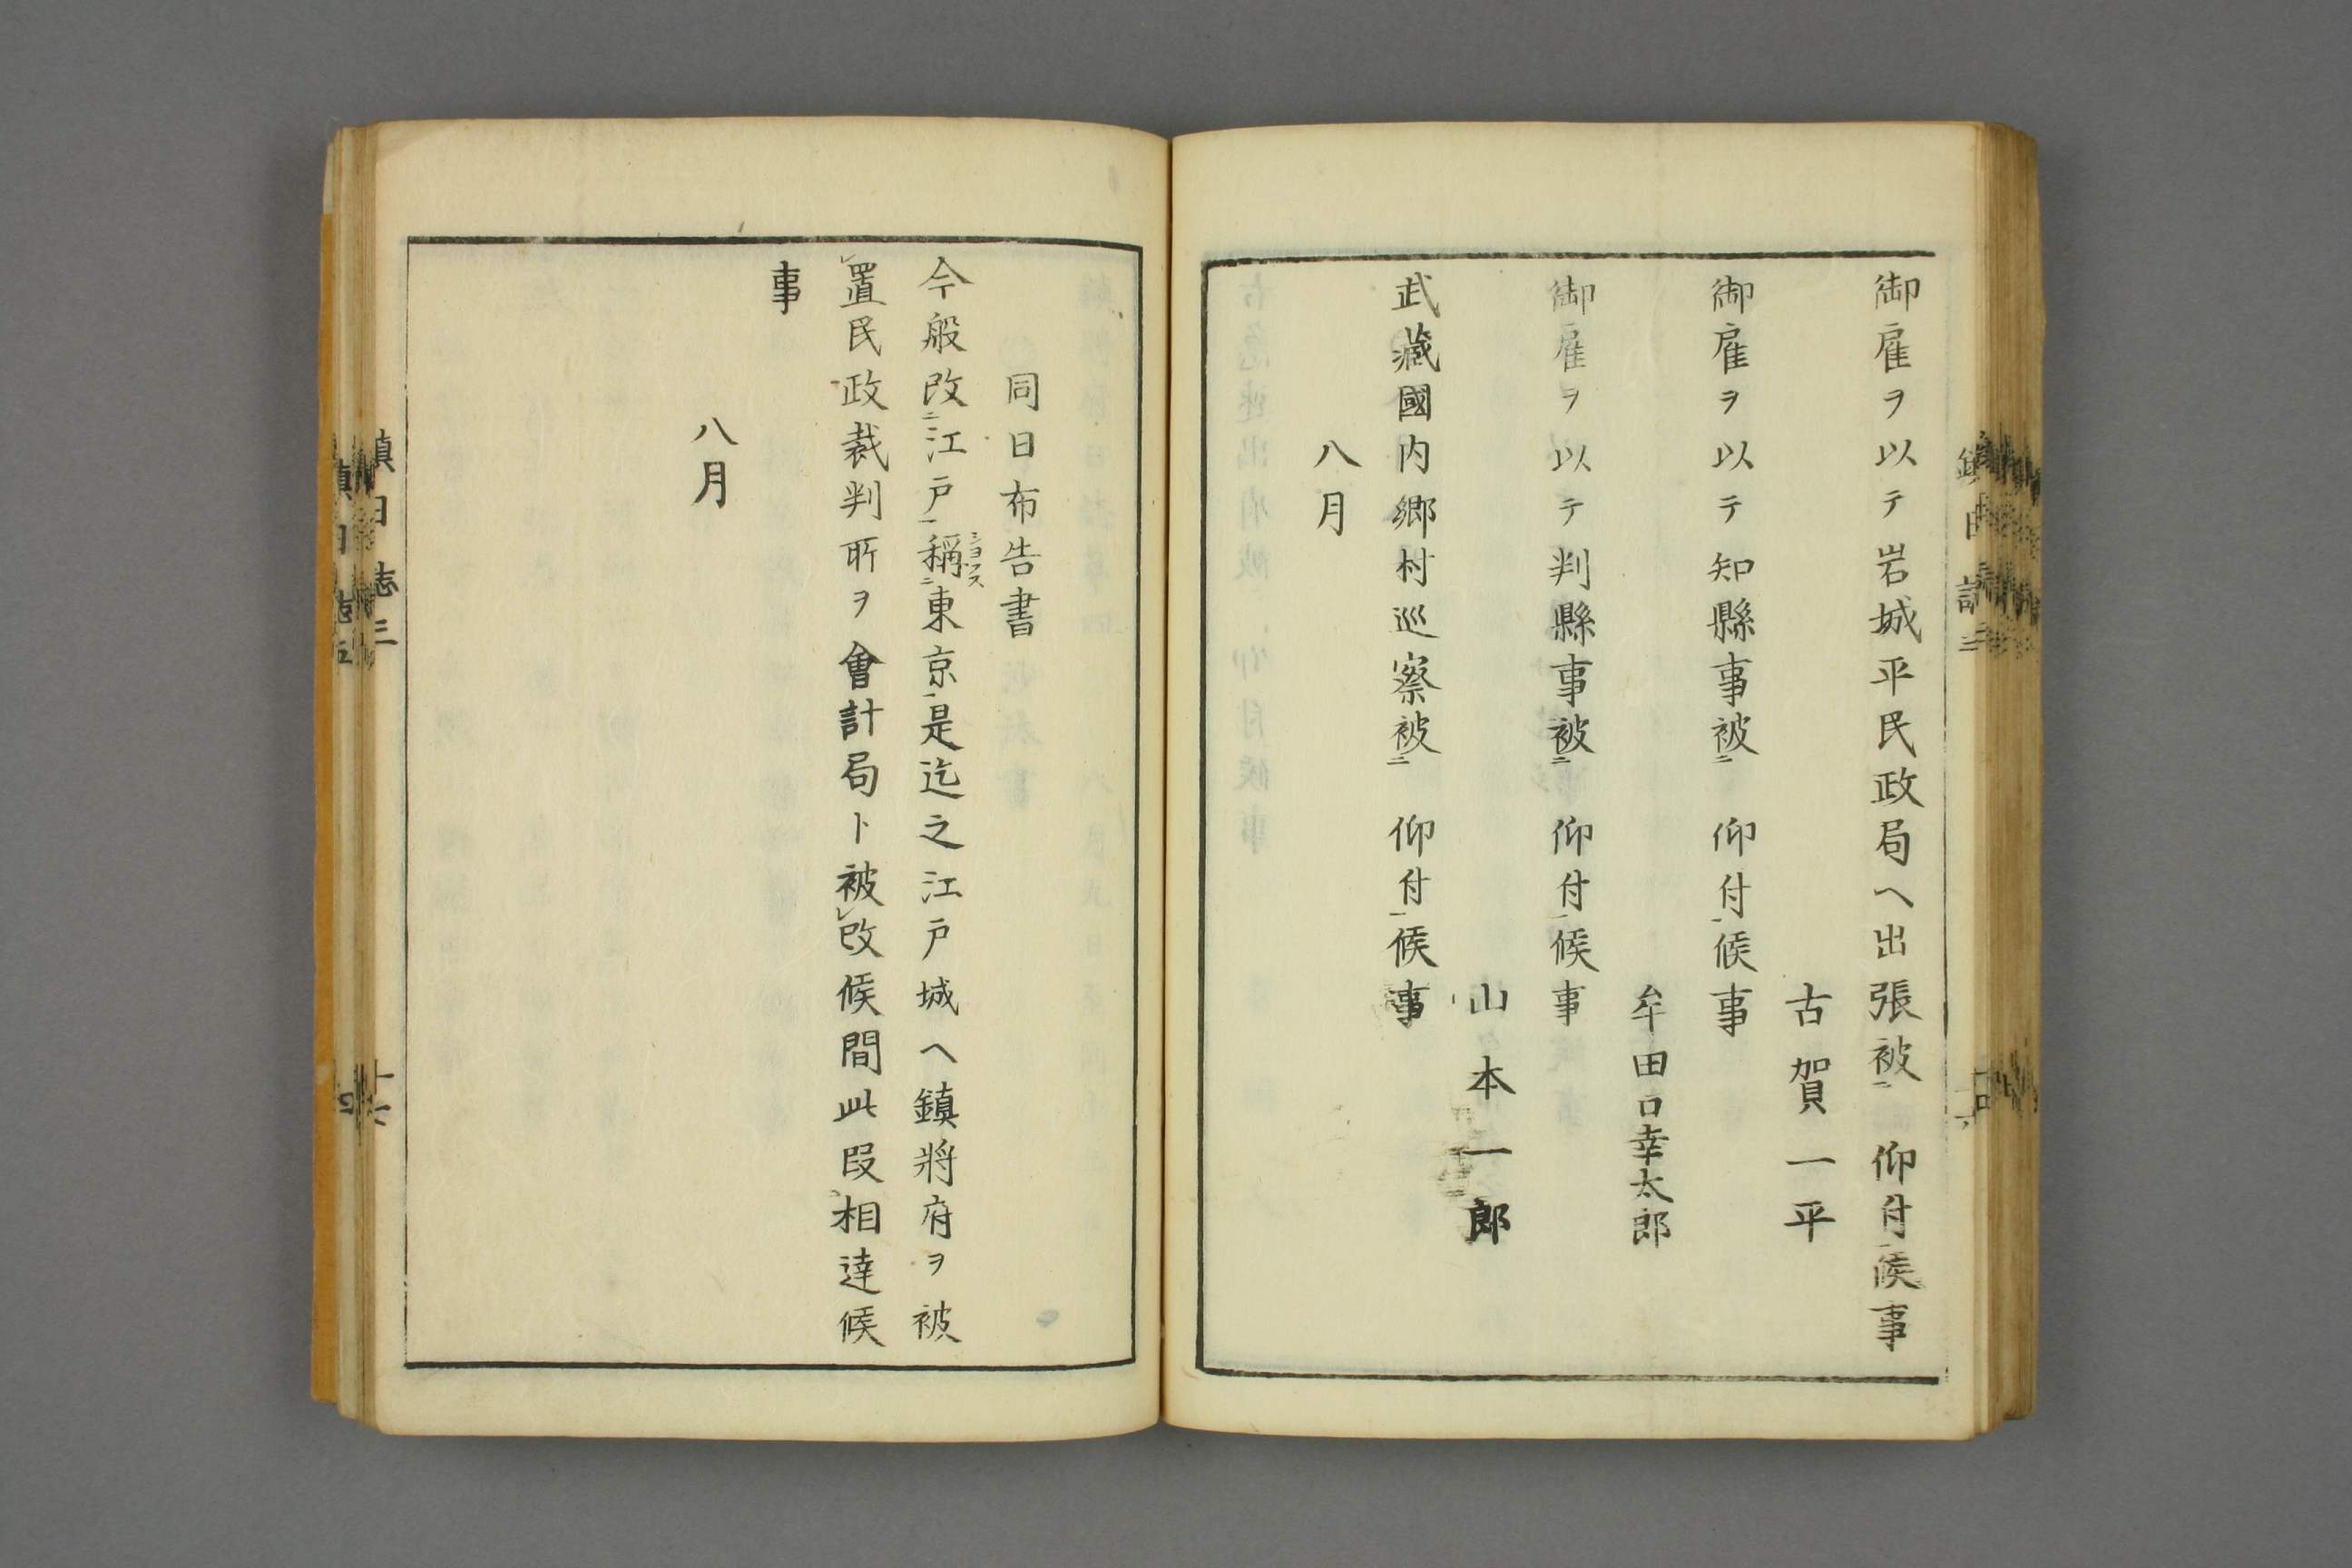 御雇ヲ以テ岩城平民政局ヘ出張被㆓ 仰付㆒候事
古賀一平
御雇ヲ以テ知縣事被㆓ 仰付㆒候事
牟田口幸太郎
御雇ヲ以テ判縣事被㆓ 仰付㆒候事
山本一郎
武藏國内郷村巡察被㆓ 仰付㆒候事
八月
同日布告書
今般改㆓江戸㆒稱㆓東京㆒是迄之江戸城ヘ鎮將府ヲ被
ショウス
㆑置民政裁判所ヲ會計局ト被㆑改候間此段相達候
事
八月
鎮日志三
十六